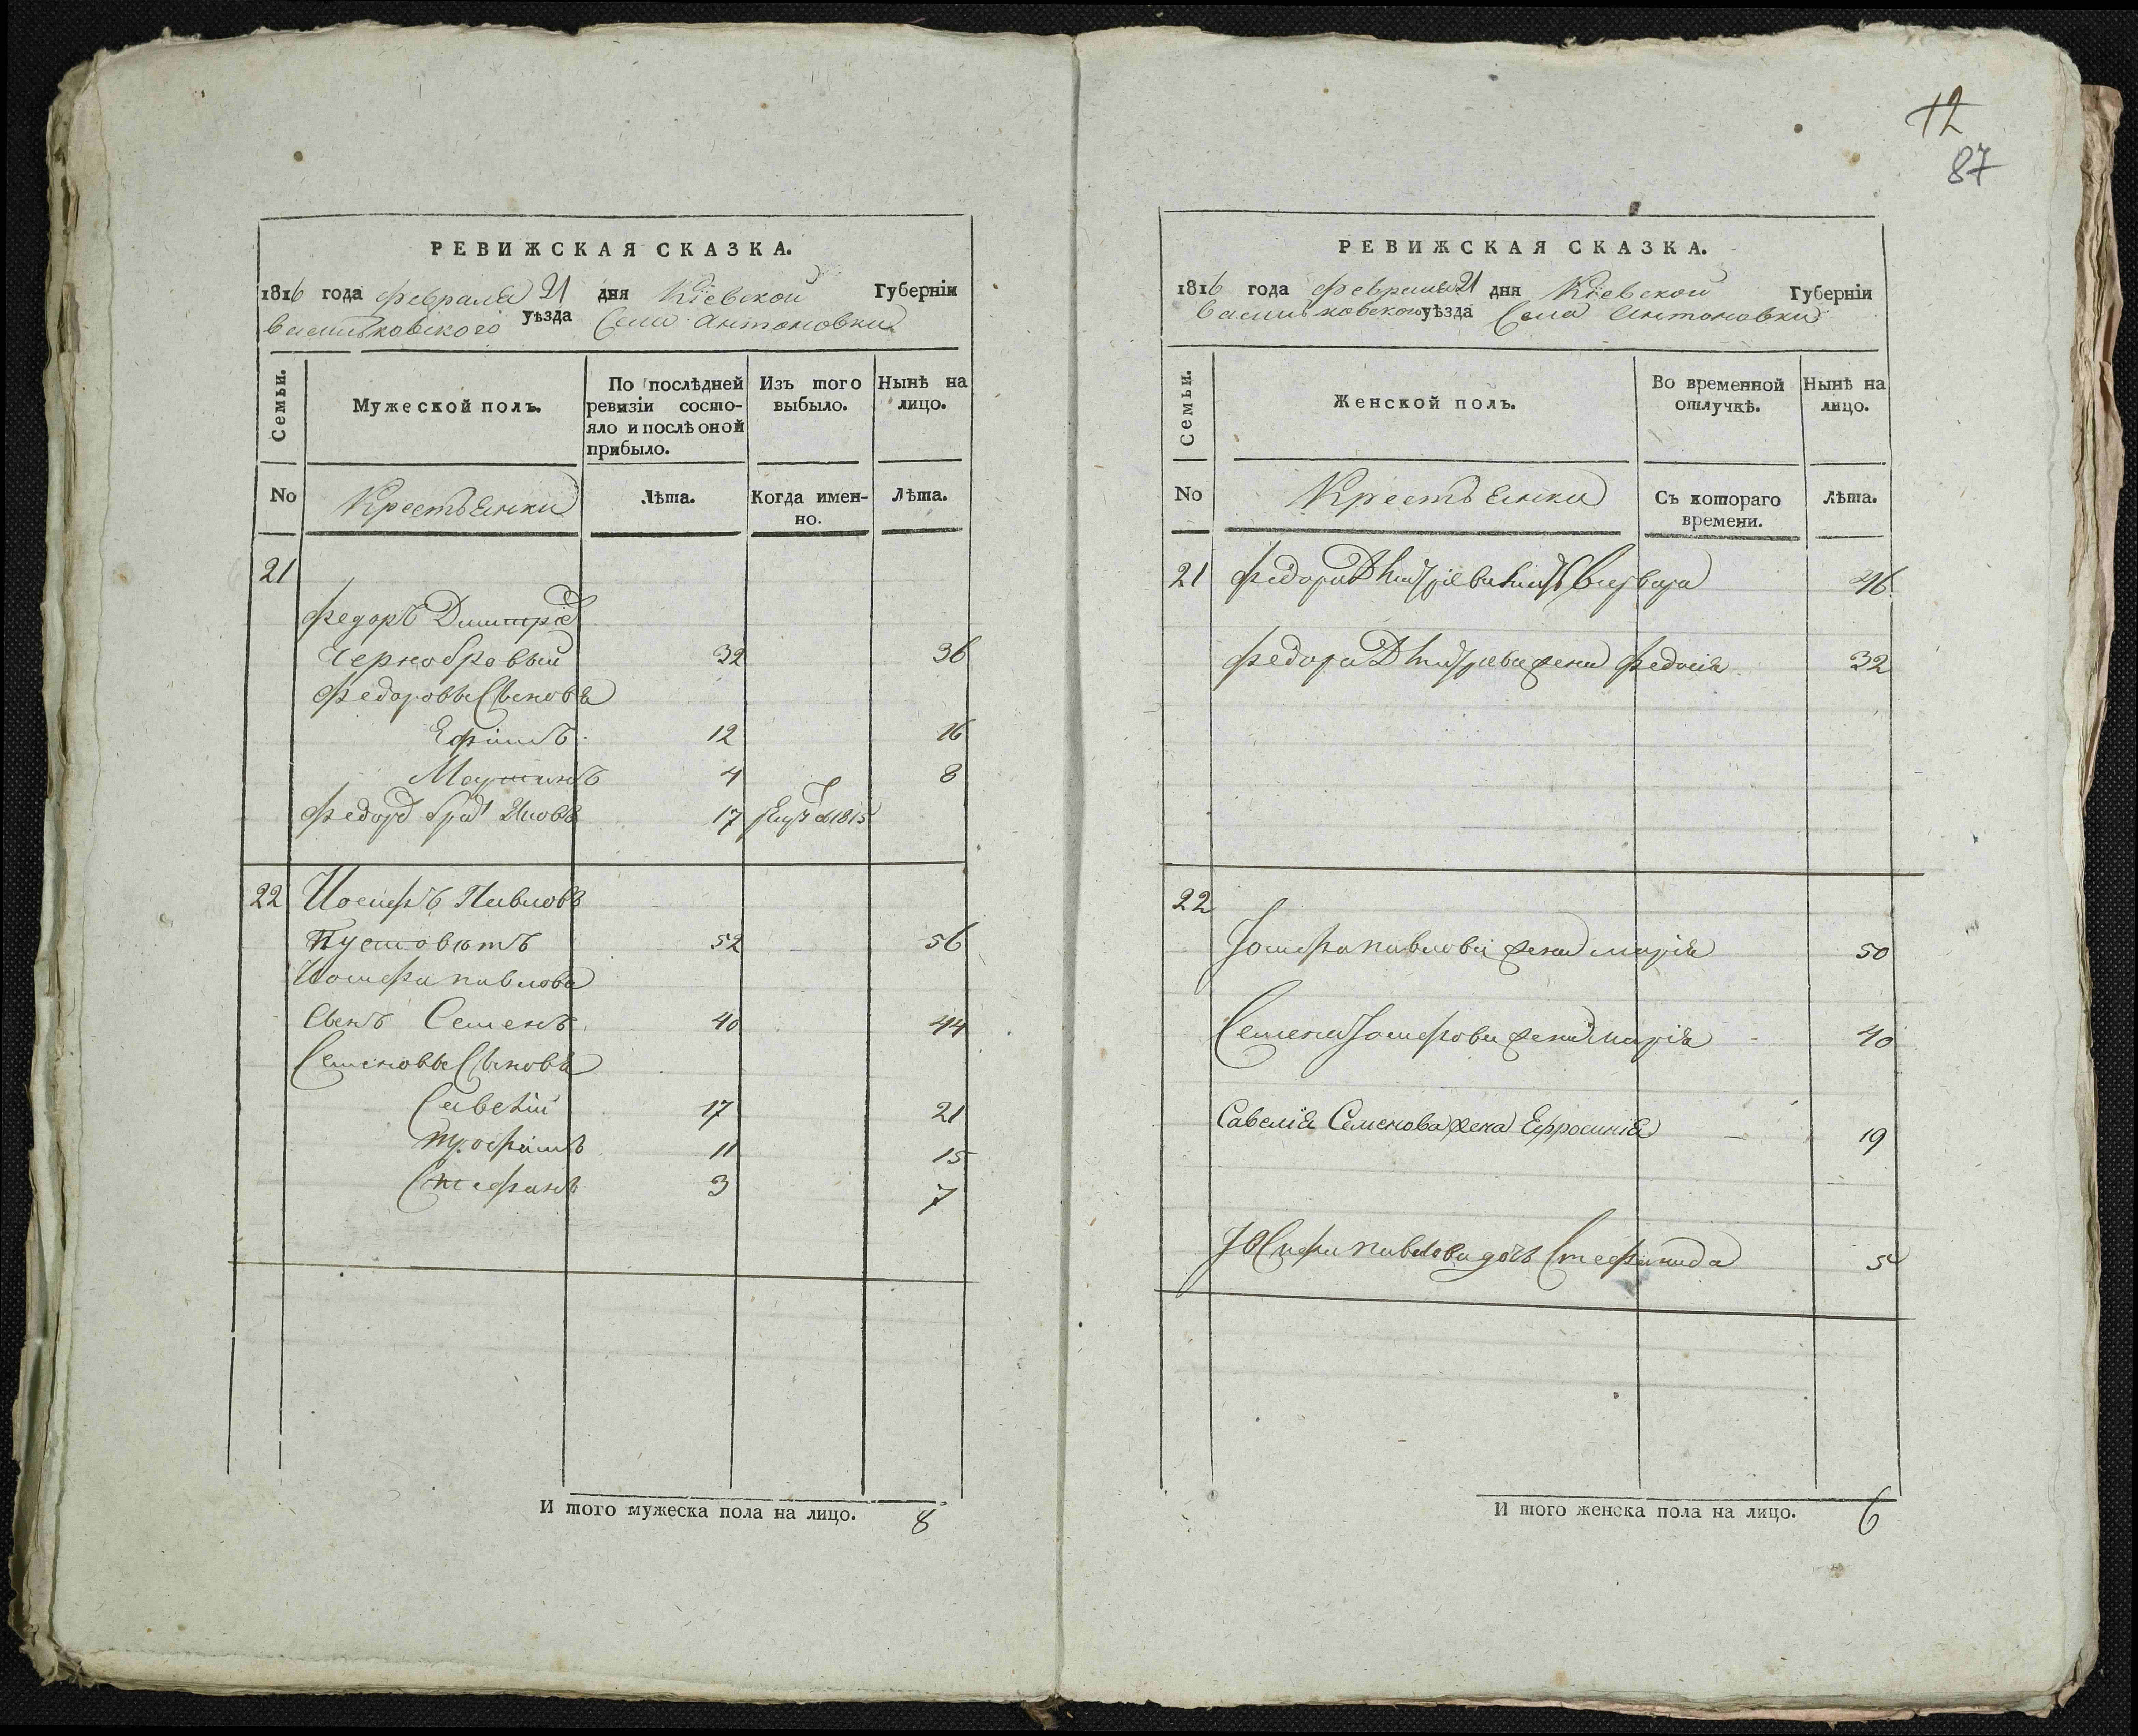 12
87
РЕВИЖСКАЯ СКАЗКА.
1816 года февраля 21 дня Кіевской Губерніи
васильковского уѣзда Села Антоновки
Семьи.
Мужеской полъ.
По послѣдней ревизіи состо-
яло и послѣ оной прибыло.
Изъ того выбыло.
Нынѣ на лицо.
No
Крестьянки
Лѣта.
Когда имен-
но.
Лѣта.
21
Федоръ Димитріе
Чернобровый 32 36
Федоровы Сыновя
Ефимъ 12 16
Мартинъ 4 8
Федора брат 17 1815
22 Иосифъ Павловъ
Пустовютъ 52 56
Иосифа павлова
Сынъ Семенъ 40 44
Семеновы Сыновя
Савелій 17 21
трофимъ 11 15
Стефанъ 3 7
И того мужеска пола на лицо. 8
РЕВИЖСКАЯ СКАЗКА.
1816 года февраля 21 дня Кіевской Губерніи
васильковского уѣзда Села Антоновки
Семьи.
Женской полъ.
Во временной отлучкѣ.
Нынѣ на лицо.
No
Крестьянки
Съ котораго
времени.
Лѣта.
21 Федора
Федора жена федосія 32
22
Иосифа павлова жена марія 50
Семена Иосифова жена марія 40
Савелія Семенова жена Ефросинія 19
Иосифа павлова дочь Стефанида 5
И того женска пола на лицо. 6